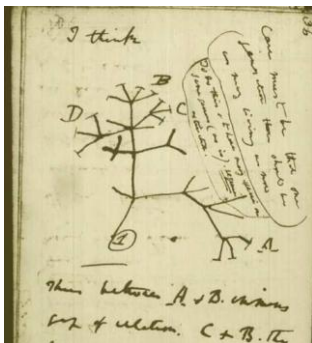 I think
Case must be that one
generation then should be
as many living as now
To do this & to have many species in
same genus (as is). requires
extinction.
B
C
D
A
1
Thus between A & B. immense
gap of relation. C & B. the
36